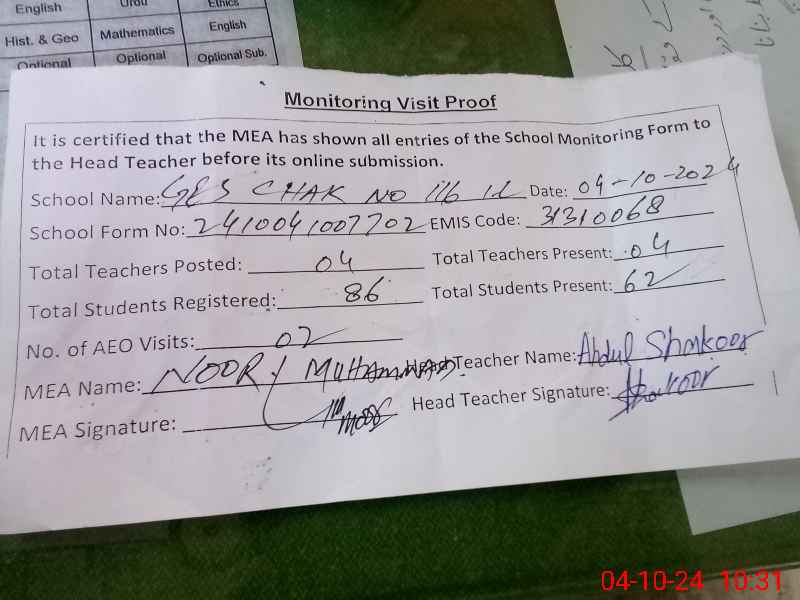 English Urdu Ethics
Hist. & Geo Mathematics English
Optional Optional Optional Sub.
Monitoring Visit Proof
It is certified that the MEA has shown all entries of the School Monitoring Form to
the Head Teacher before its online submission.
School Name: GES CHAK NO 116 1.L Date: 04-10-2024
School Form No: 2410041007702 EMIS Code: 31310068
Total Teachers Posted: 04 Total Teachers Present: 04
Total Students Registered: 86 Total Students Present: 62
No. of AEO Visits: 02
MEA Name: NOOR MUHAMMAD Head Teacher Name: Abdul Shakoor
MEA Signature: Head Teacher Signature: Shakoor
04-10-24 10:31